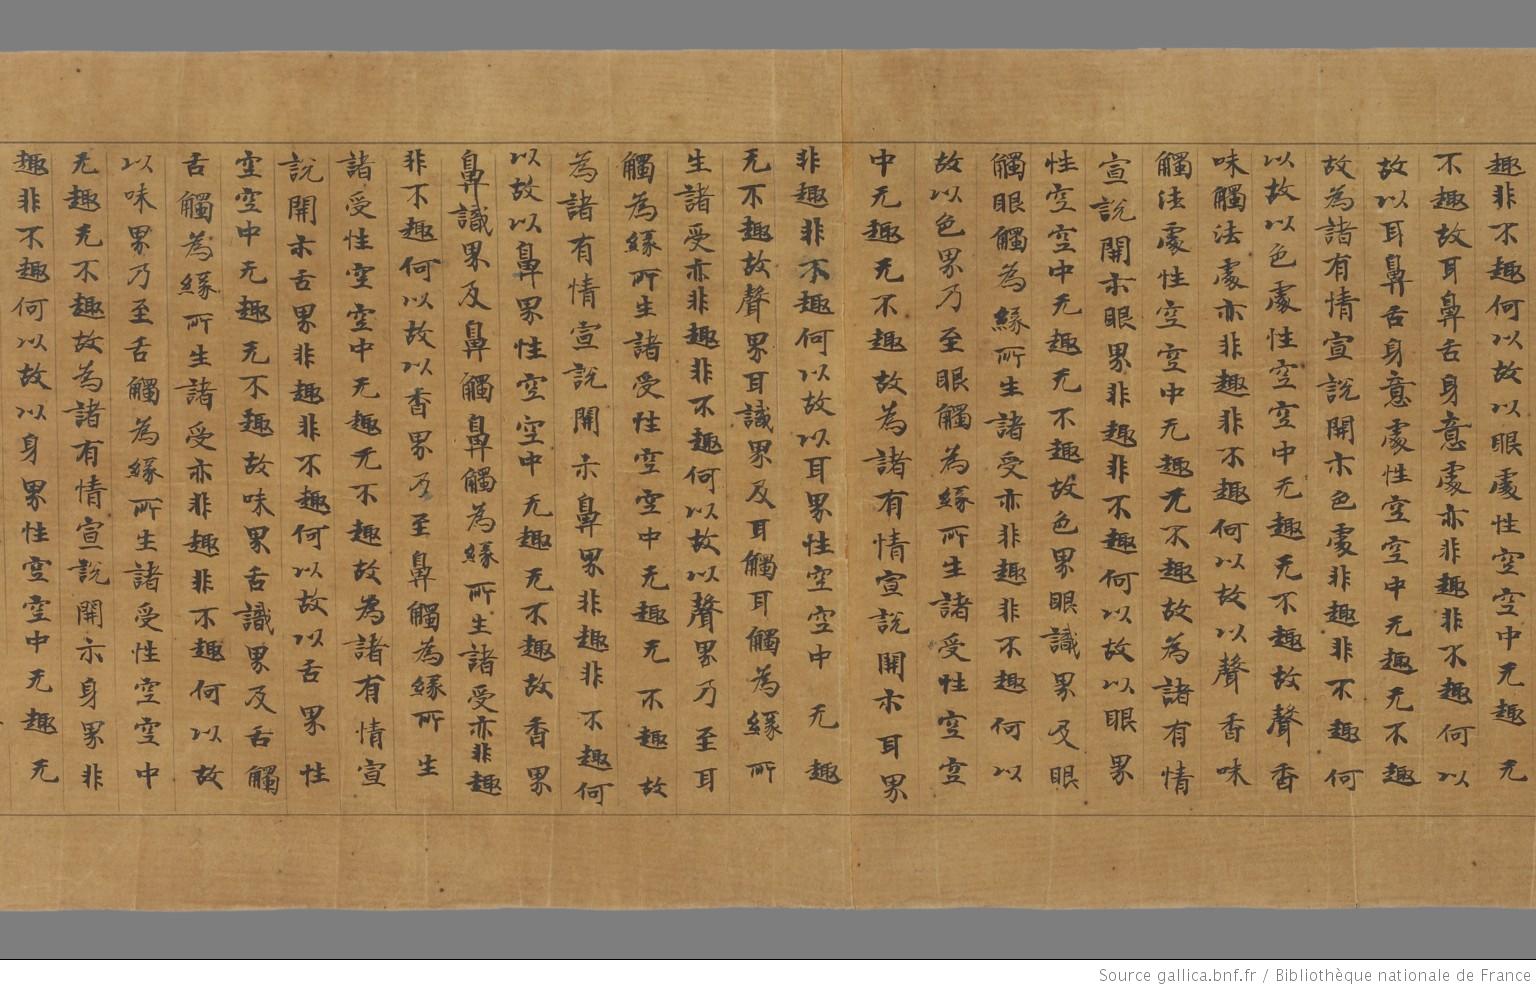 趣非不趣何以故以眼處性空空中无趣无
不趣故耳鼻舌身意處亦非趣非不趣何以
故以耳鼻舌身意處性空空中无趣无不趣
故為諸有情宣說開示色處非趣非不趣何
以故以色處性空空中无趣无不趣故聲香
味觸法處亦非趣非不趣何以故以聲香味
觸法處性空空中无趣无不趣故為諸有情
宣說開示眼界非趣非不趣何以故以眼界
性空空中无趣无不趣故色界眼識界及眼
觸眼觸為緣所生諸受亦非趣非不趣何以
故以色界乃至眼觸為緣所生諸受性空空
中无趣无不趣故為諸有情宣說開示耳界
非趣非不趣何以故以耳界性空空中无趣
无不趣故聲界耳識界及耳觸耳觸為緣所
生諸受亦非趣非不趣何以故以聲界乃至耳
觸為緣所生諸受性空空中无趣无不趣故
為諸有情宣說開示鼻界非趣非不趣何
以故以鼻界性空空中无趣无不趣故香界
鼻識界及鼻觸鼻觸為緣所生諸受亦非趣
非不趣何以故以香界乃至鼻觸為緣所生
諸受性空空中无趣无不趣故為諸有情宣
說開示舌界非趣非不趣何以故以舌界性
空空中无趣无不趣故味界舌識界及舌觸
舌觸為緣所生諸受亦非趣非不趣何以故
以味界乃至舌觸為緣所生諸受性空空中
无趣无不趣故為諸有情宣說開示身界非
趣非不趣何以故以身界性空空中无趣无
Source gallica.bnf.fr / Bibliothèque nationale de France